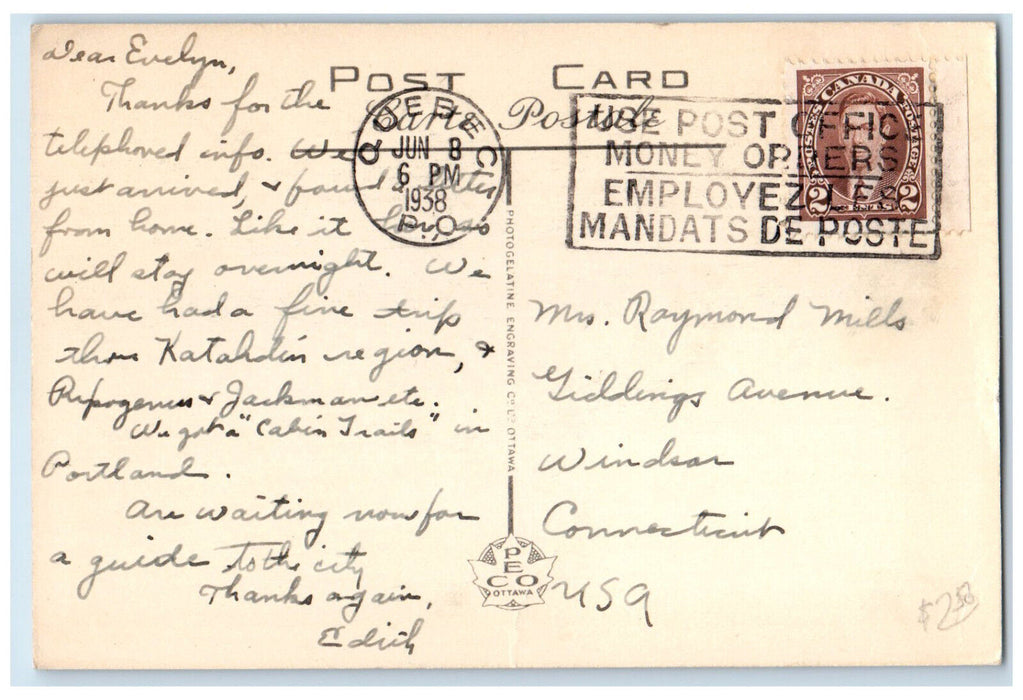 Dear Evelyn,
Thanks for the
telephoned info. We
just arrived, & found letter
from home. Like it here, so
will stay overnight. We
have had a fine trip
thru Katahdin region, &
Ripogenus & Jackman etc.
We got a "Cabin Trails" in
Portland.
Are waiting now for
a guide to the city
Thanks again,
Edith
POST CARD
Carte Postale
QUEBEC
JUN 8
6 PM
1938
P.Q.
USE POST OFFIC
MONEY ORDERS
EMPLOYEZ LES
MANDATS DE POSTE
CANADA
POSTES POSTAGE
2 CENTS 2
PHOTOGELATINE ENGRAVING CO. LTD. OTTAWA
Mrs. Raymond Mills
Giddings Avenue.
Windsor
Connecticut
USA
PECO
OTTAWA
$2.50